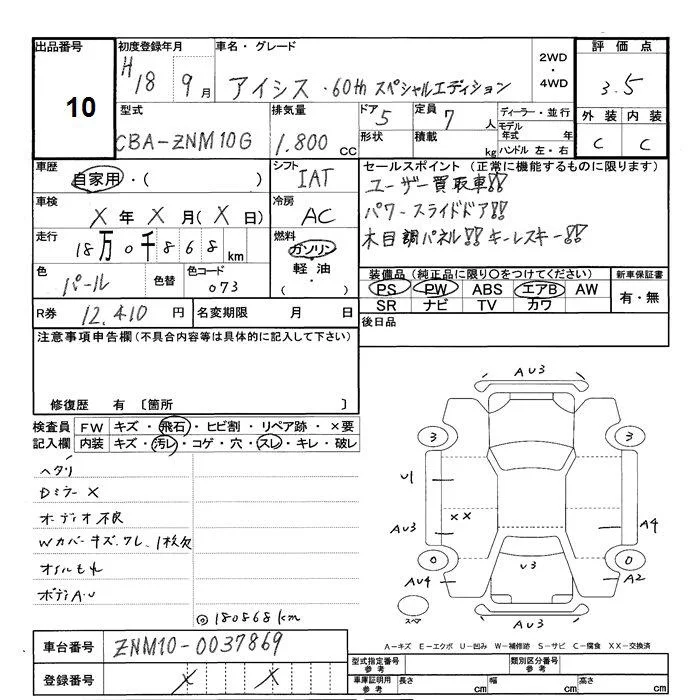 出品番号 初度登録年月 車名・グレード 2WD・4WD 評価点
10 H18 9月 アイシス・60th スペシャルエディション 3.5
型式 排気量 ドア 5 定員 7人 ディーラー・並行 外装 内装
CBA-ZNM10G 1.800 CC 形状 積載 kg モデル年式 年 C C
ハンドル 左・右
車歴 自家用・( ) シフト IAT セールスポイント (正常に機能するものに限ります)
ユーザー買取車!!
車検 X年X月(X日) 冷房 AC パワースライドドア!!
走行 18万0千868km 燃料 ガソリン・軽油・( ) 木目調パネル!! キーレスキー!!
色 パール 色替 色コード 073 装備品 (純正品に限り○をつけてください) 新車保証書
PS PW ABS エアB AW 有・無
SR ナビ TV カワ
R券 12.410円 名変期限 月 日 後日品
注意事項申告欄(不具合内容等は具体的に記入して下さい)
修復歴 有 〔箇所 〕
検査員記入欄 FW キズ・飛石・ヒビ割・リペア跡・×要
内装 キズ・汚レ・コゲ・穴・スレ・キレ・破レ
ヘタリ
Dミラー X
オーディオ不良
Wカバーキズ.ワレ.1枚欠
オイルもれ
ボディA.U
◎180868km
AU3
3 3
U1
AU3 XX A4
0 U3 0
AU4 A2
スペア AU3
A-キズ E-エクボ U-凹み W-補修跡 S-サビ C-腐食 XX-交換済
車台番号 ZNM10-0037869
登録番号 X X
型式指定番号 参考 類別区分番号 参考
車庫証明用 参考 長さ cm 幅 cm 高さ cm